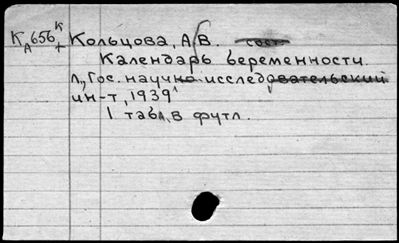 К А 656 К Кольцова, А.В. сост.
Календарь беременности.
Л., Гос. научно-исследовательский
ин-т, 1939
1 табл. в футл.